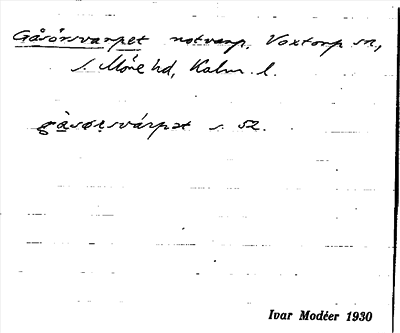 Gåsörsvarpet notvarp, Voxtorp sn,
s. Möre hd, Kalm. l.
gåsørsvárpət s. 52.
Ivar Modéer 1930